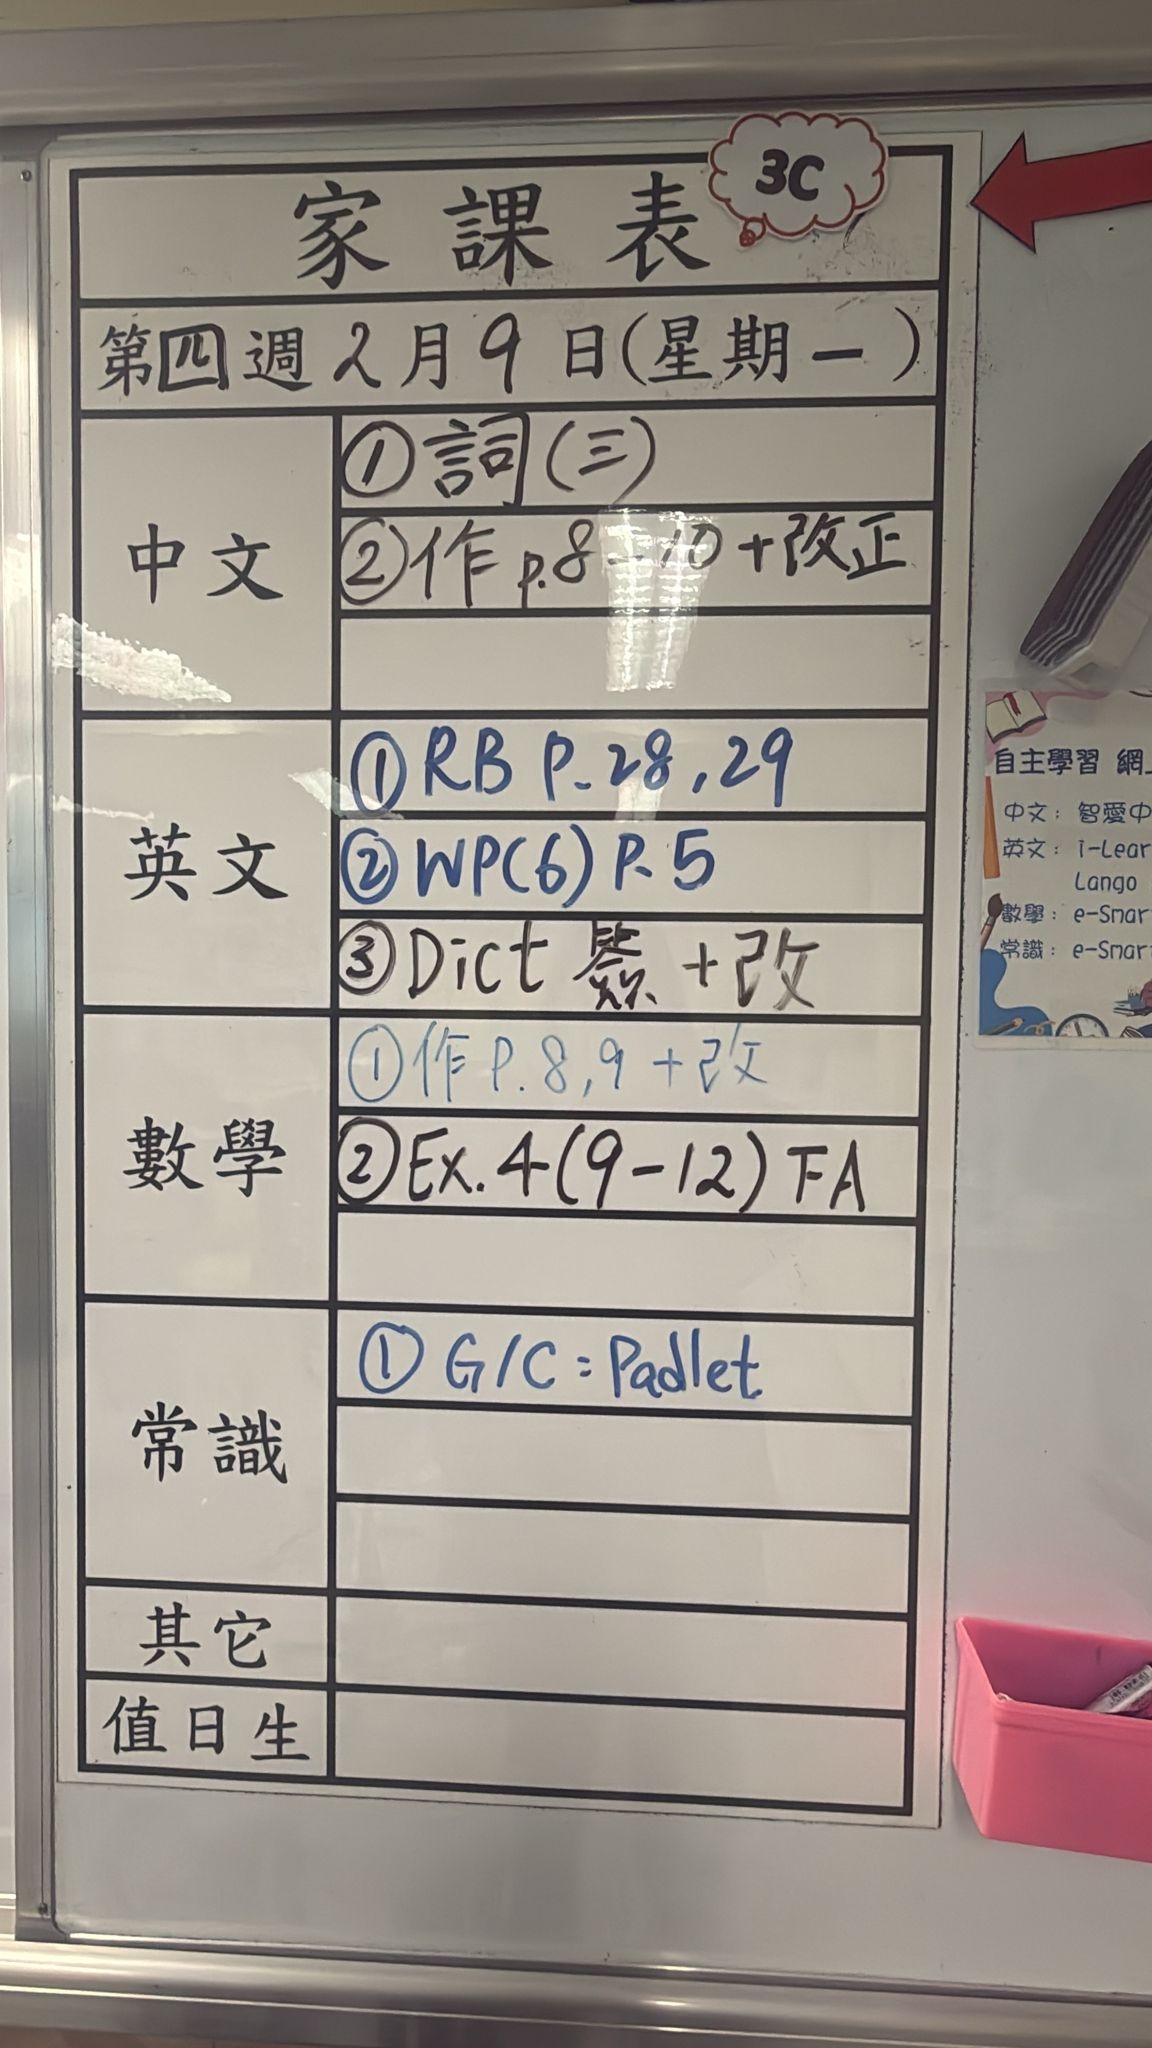 3C
家課表
第四週2月9日(星期一)
中文
①詞(三)
②作 p.8-10+改正
英文
①RB P.28,29
②WP(6) P.5
③Dict 簽+改
數學
①作P.8,9+改
②Ex.4(9-12) FA
常識
① G/C = Padlet
其它
值日生
自主學習 網
中文: 智愛中
英文: i-Lear
Lango
數學: e-Smar
常識: e-Smar